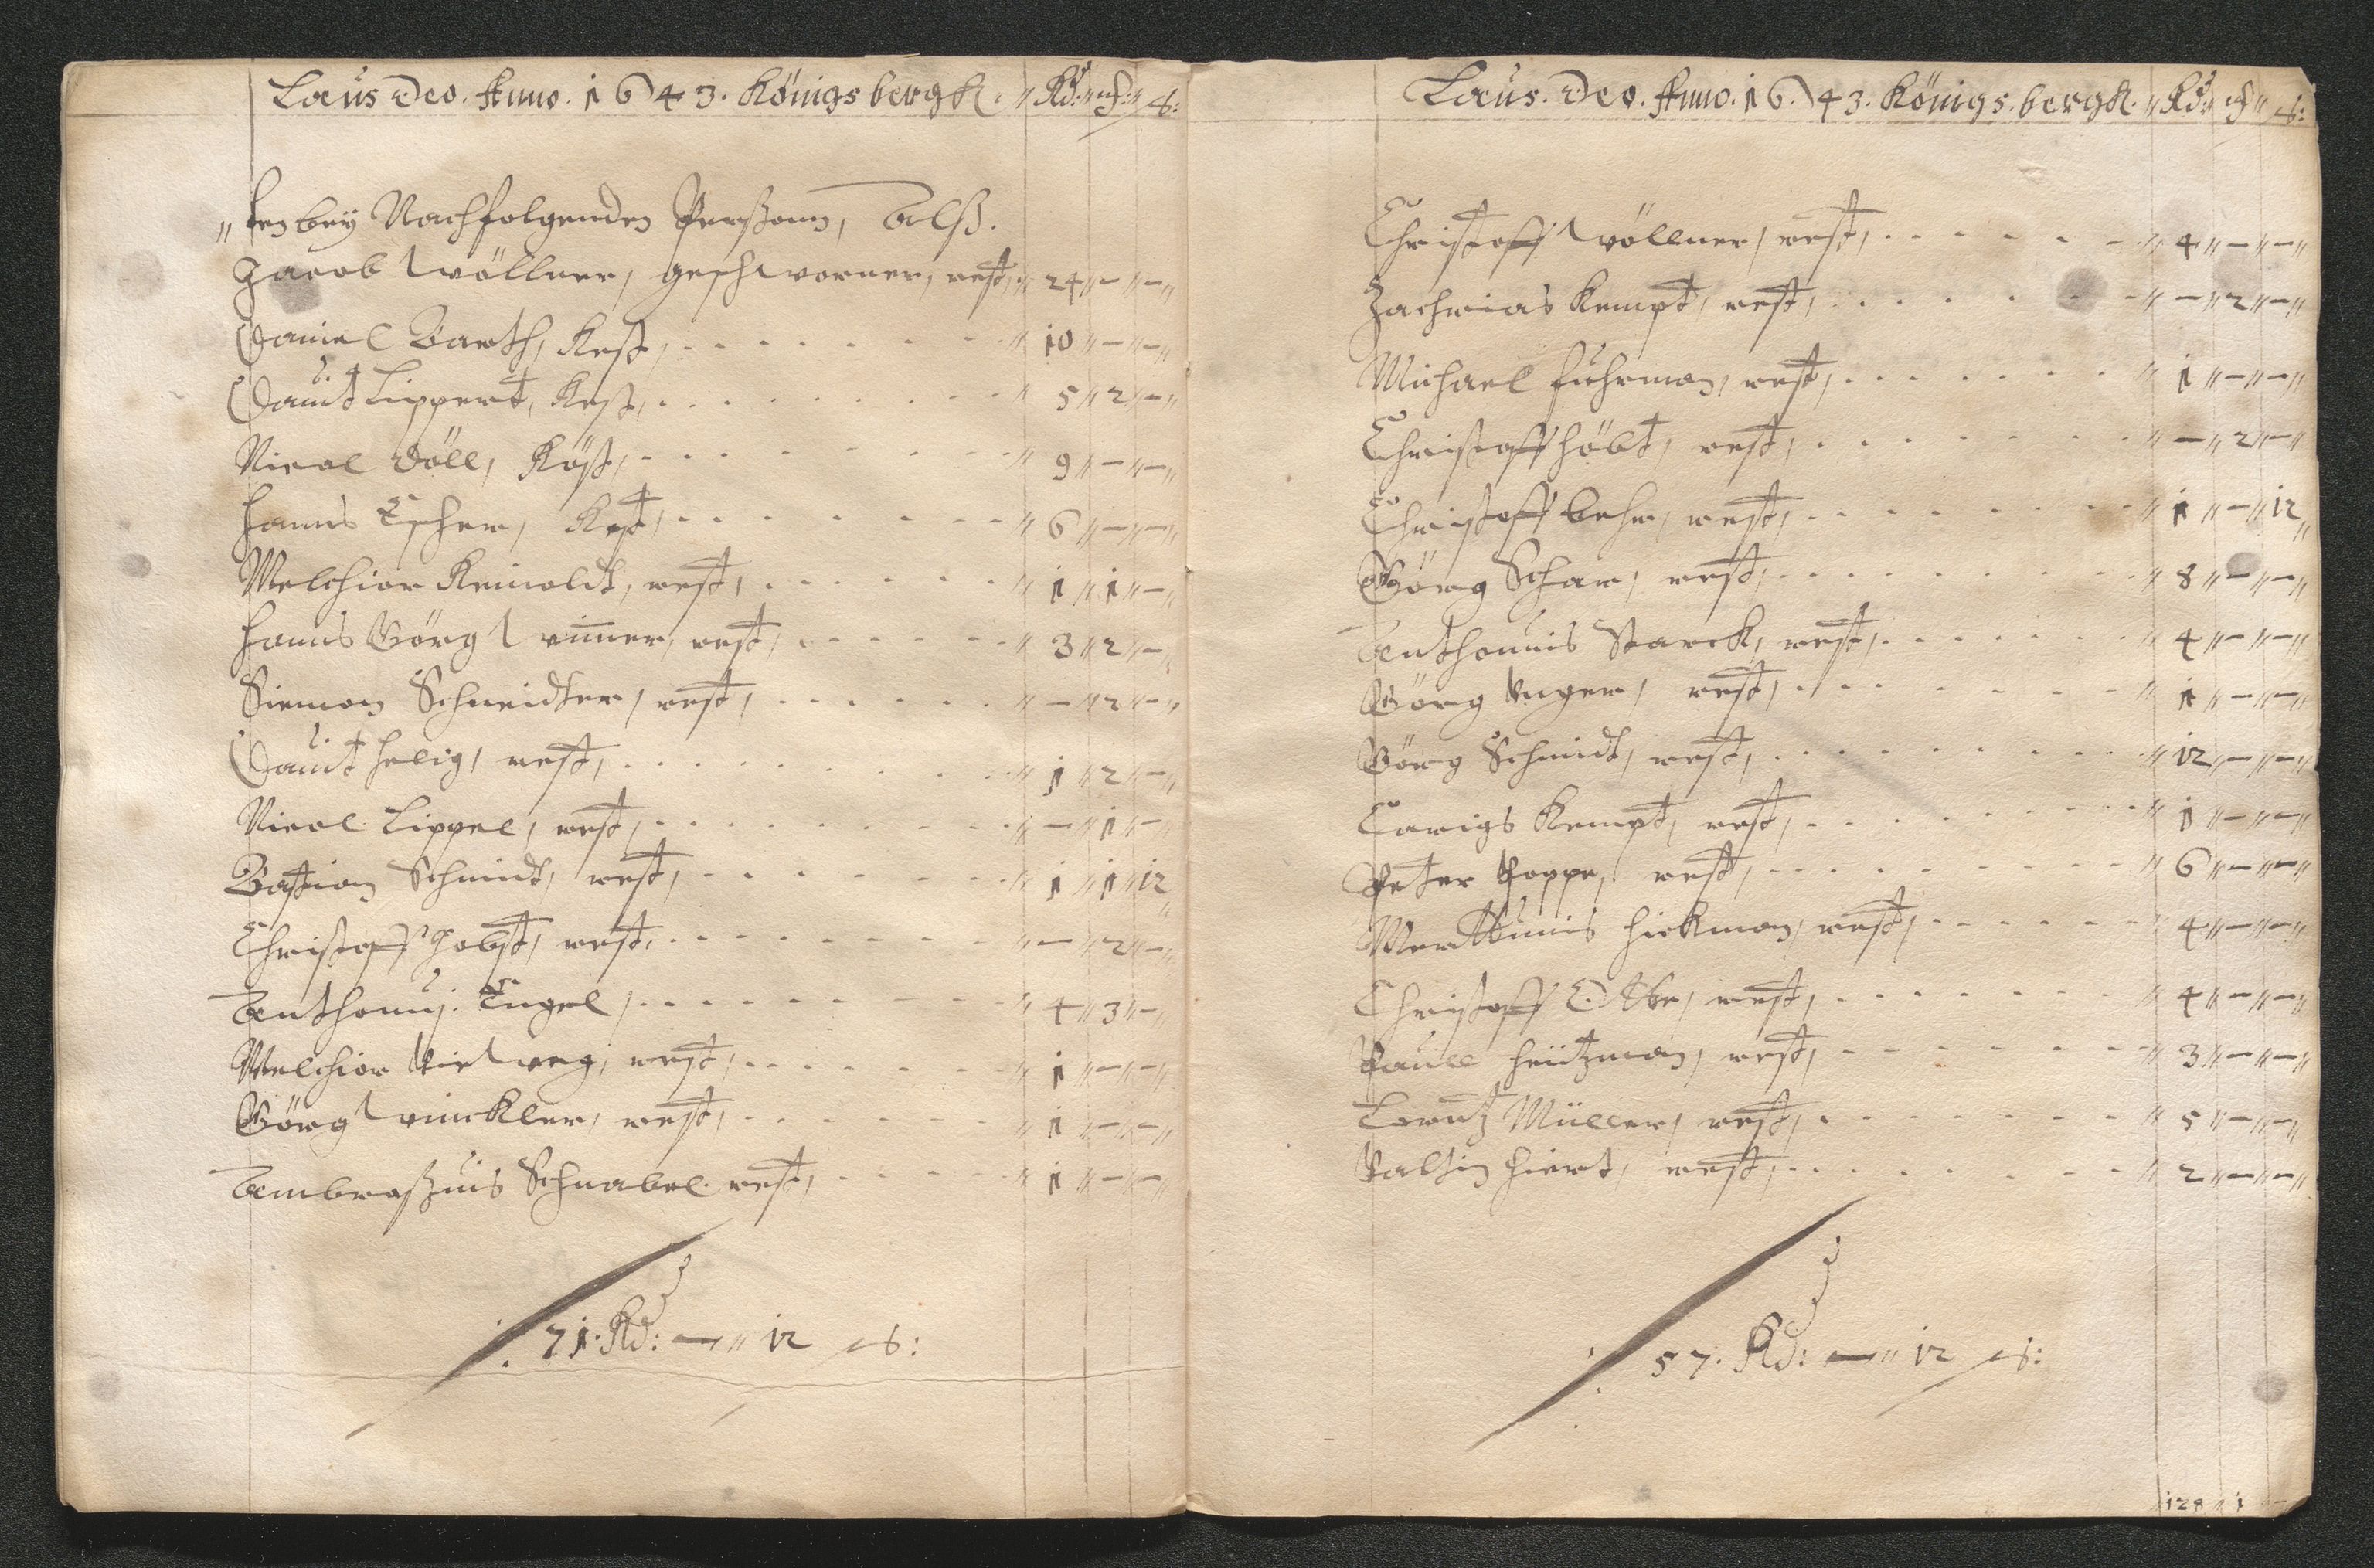 Laus Deo. Anno. 1643. Königsbergk. " Rd: " ß: " ₰:
" ten beÿ Nachfolgenden Perßonn, Alß.
Jacob Wöllner, geschworner, rest, " 24 " — " — "
Daniel Barth, Rest, . . . . . . " 10 " — " — "
Dauit Lippert, Rest, . . . . . . " 5 " 2 " — "
Nicol Döll, Röst, . . . . . . " 9 " — " — "
Hanns Escher, Rest, . . . . . . " 6 " — " — "
Melchior Reinoldt, rest, . . . . . . " 1 " 1 " — "
Hanns Görg Wimer, rest, . . . . . . " 3 " 2 " — "
Siemon Schneidter, rest, . . . . . . " — " 2 " — "
Dauit Helig, rest, . . . . . . " 1 " 2 " — "
Nicol Lippel, rest, . . . . . . " — " 1 " — "
Bastian Schmidt, rest, . . . . . . " 1 " 1 " 12 "
Christoff Jobst, rest, . . . . . . " — " 2 " — "
Anthonuj. Engel, . . . . . . " 4 " 3 " — "
Melchior Vieweg, rest, . . . . . . " 1 " — " — "
Görg Winckler, rest, . . . . . . " 1 " — " — "
Ambroszius Schnabel. rest, . . . . . . " 1 " — " — "
71. Rd: — " 12 ₰:
Laus. Deo. Anno. 1643. Königs.bergk. " Rd: " ß " ₰:
Christoff Wöllner, rest, . . . . . . " 4 " — " — "
Zachrias Kempt, rest, . . . . . . " — " 2 " — "
Michael Fuhrman, rest, . . . . . . " 1 " — " — "
Christoff Höbt, rest, . . . . . . " — " 2 " — "
Christoff Behr, rest, . . . . . . " 1 " — " 12 "
Görg Schar, rest, . . . . . . " 8 " — " — "
Anthonius Starck, rest, . . . . . . " 4 " — " — "
Görg Unger, rest, . . . . . . " 1 " — " — "
Görg Schmidt, rest, . . . . . . " 12 " — " — "
Carigs Kempt, rest, . . . . . . " 1 " — " — "
Peter Poppe, rest, . . . . . . " 6 " — " — "
Hickman, rest, . . . . . . " 4 " — " — "
Christoff rest, . . . . . . " 4 " — " — "
Paull Heützman, rest, . . . . . . " 3 " — " — "
Lorentz Müller, rest, . . . . . . " 5 " — " — "
Valtin Hiert, rest, . . . . . . " 2 " — " — "
57. Rd: — " 12 ₰:
128 " 1 " —